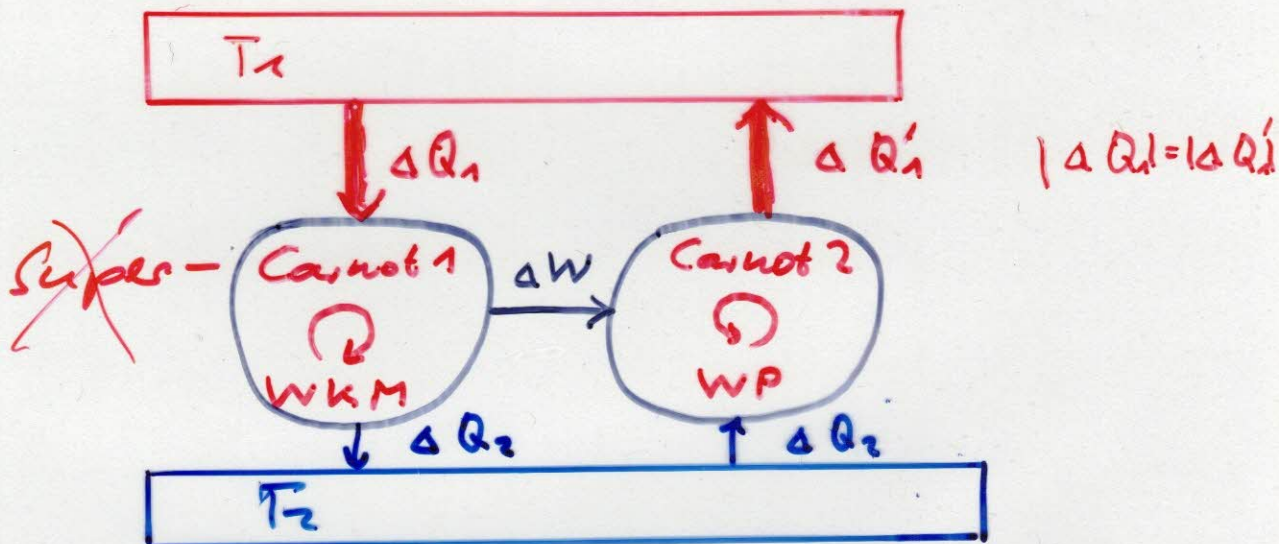 T₁
ΔQ₁
ΔQ₁'
|ΔQ₁|=|ΔQ₁'|
Super-
Carnot 1
ΔW
Carnot 2
WKM
WP
ΔQ₂
ΔQ₂
T₂